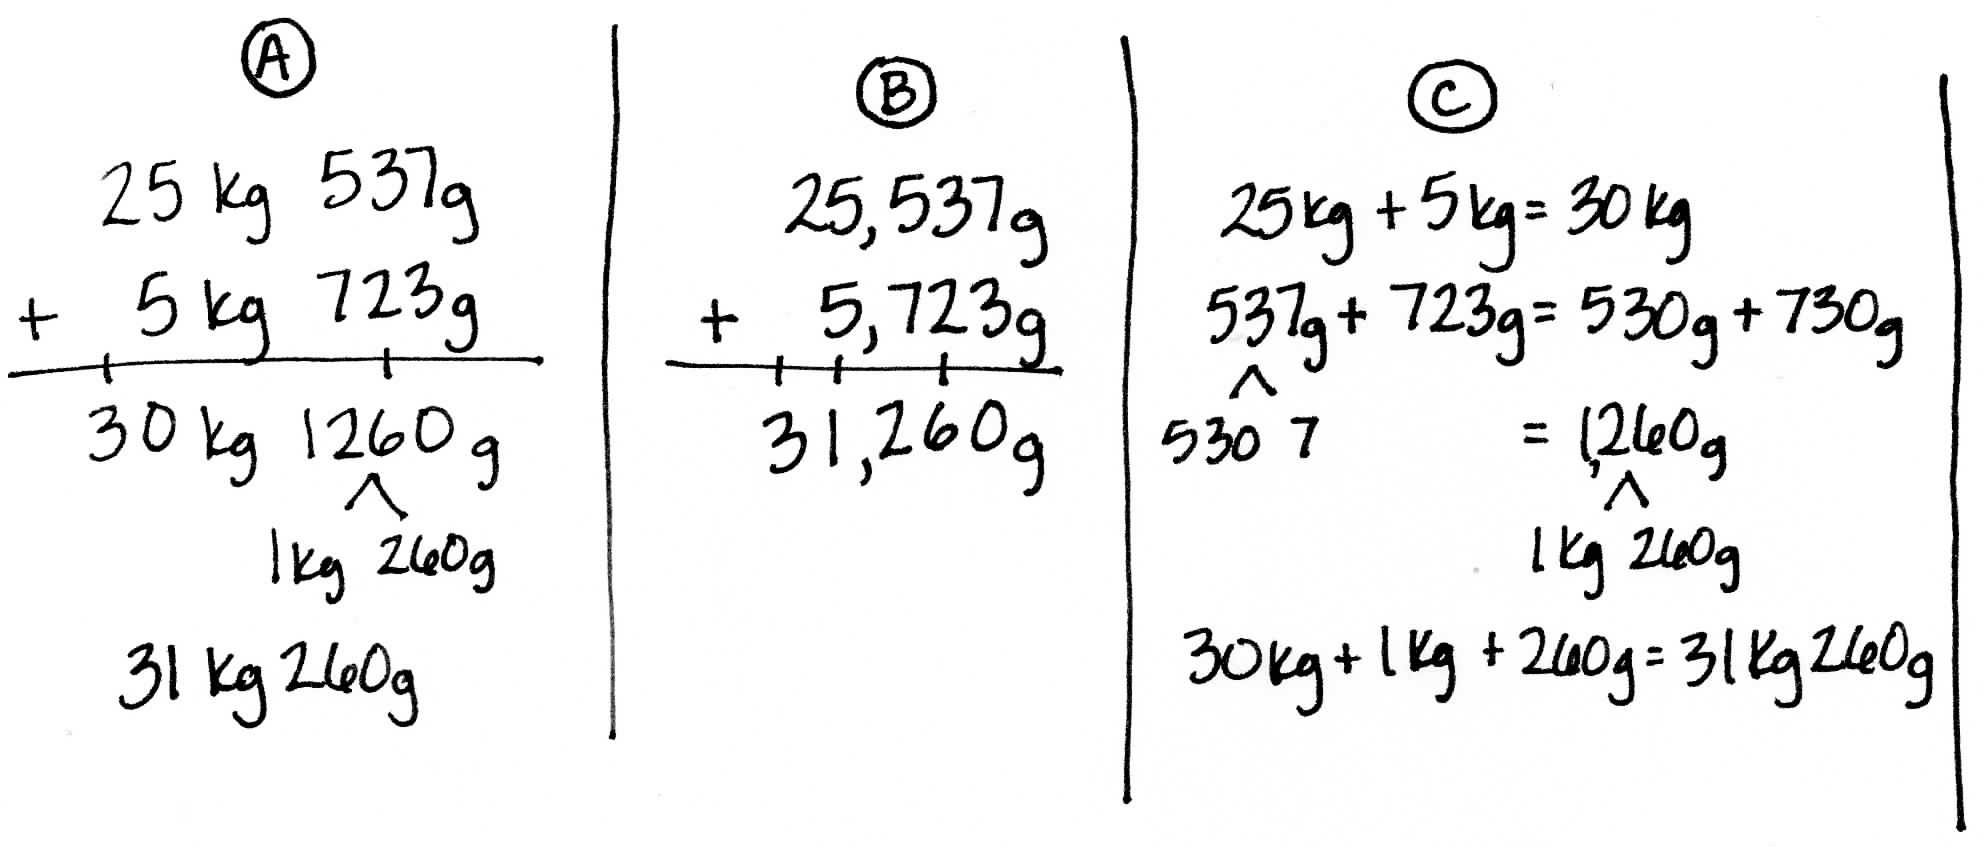 A
25 kg 537g
+ 5 kg 723g
30 kg 1260 g
1kg 260g
31 kg 260g
B
25,537g
+ 5,723g
31,260g
C
25kg + 5kg = 30 kg
537g + 723g = 530g + 730g
530 7 = 1,260g
1 kg 260g
30kg + 1kg + 260g = 31kg 260g